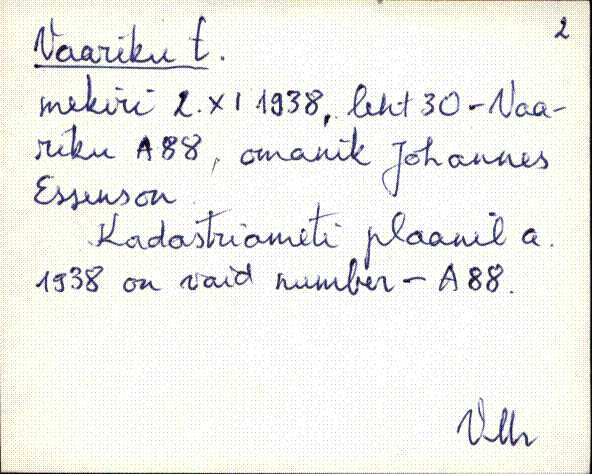 2
Vaariku t.
mekiri 2.XI 1938, leht 30 - Vaa-
riku A88, omanik Johannes
Essenson
Kadastriameti plaanil a.
1938 on vaid number - A88.